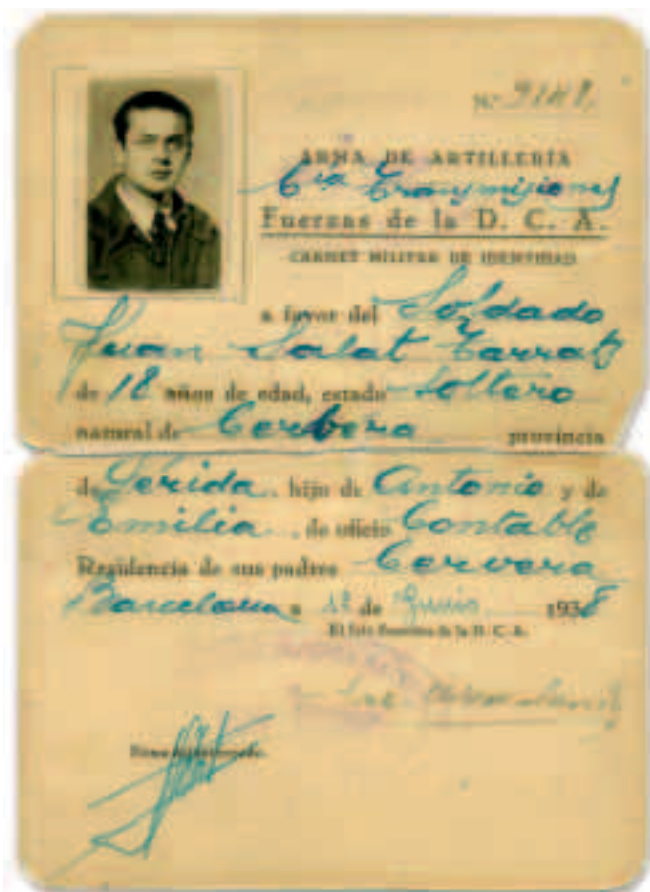 Nº 9248,
ARMA DE ARTILLERÍA
Cía Transmisiones
Fuerzas de la D. C. A.
CARNET MILITAR DE IDENTIDAD
a favor del Soldado
Juan Salat Tarrat
de 18 años de edad, estado Soltero
natural de Cerbera provincia
de Lérida, hijo de Antonio y de
Emilia, de oficio Contable
Residencia de sus padres Cervera
Barcelona a 12 de Junio 1938
El Jefe de la D. C. A.
Salat